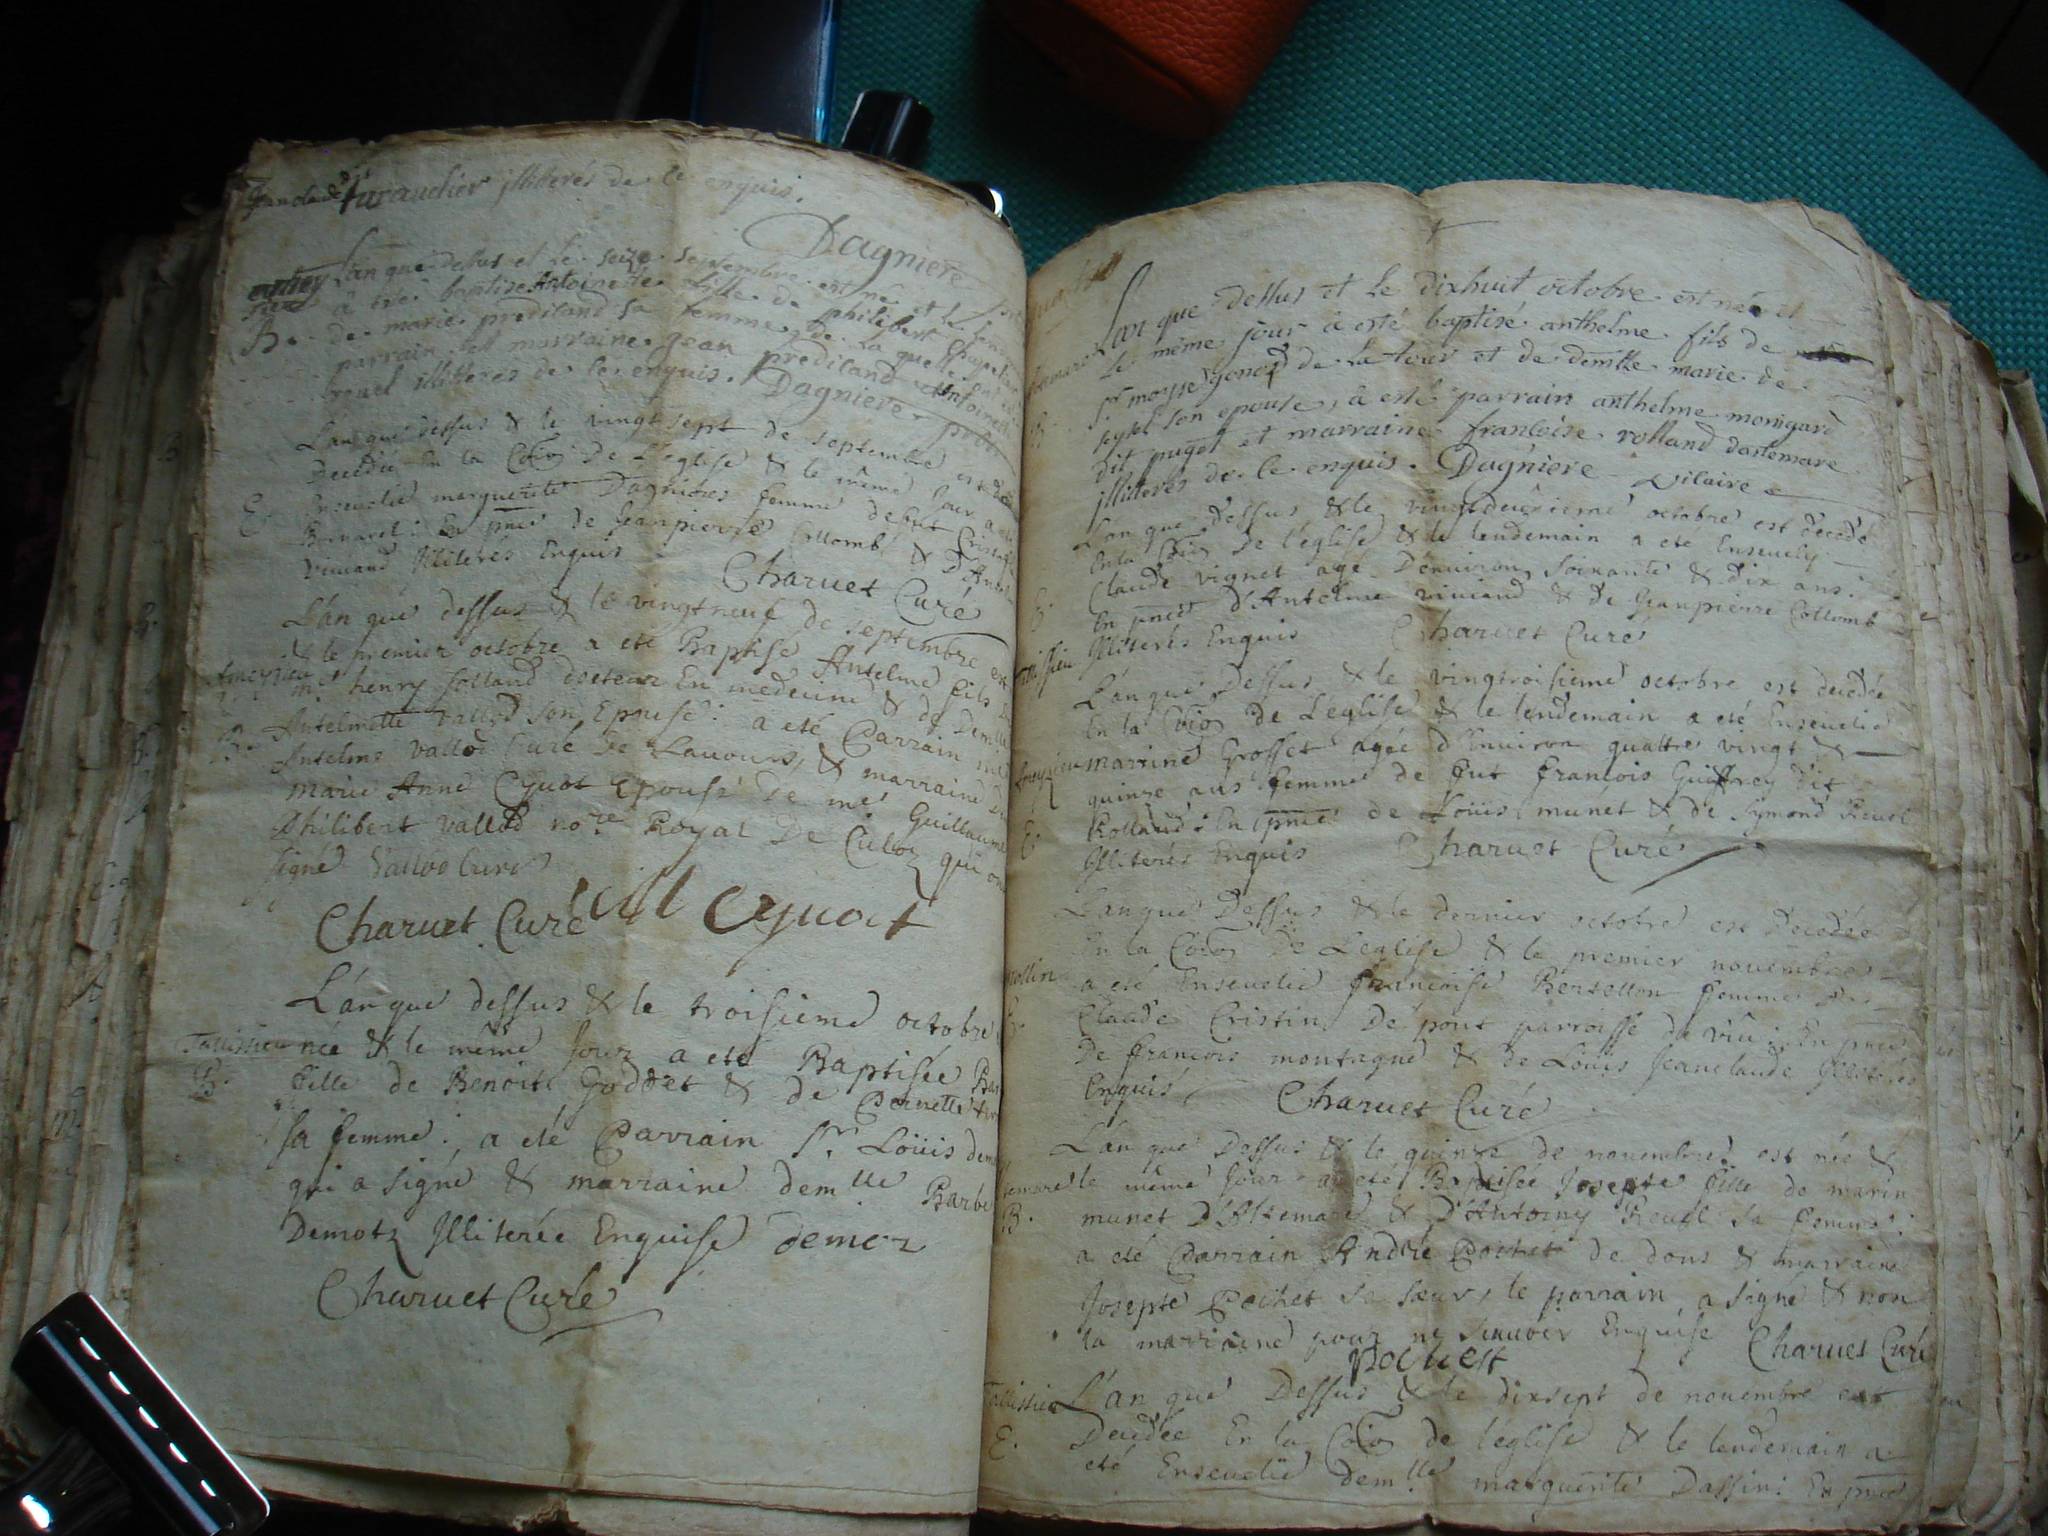 Jeanclaude juraudier jlliterés de ce enquis.
Dagniere
L'an que dessus et le seize septembre est né et le
a été baptisé Antoinette fille de philibert
B. de marie prediland sa femme, de la quelle ont été
parrain et marraine jean prediland Antoinette
illiterés de ce enquis. Dagniere
L'an que dessus & le vingt sept de septembre est
Decedée En la Coïon De L'eglise & le même Jour a été
E. Enseuelie marguerite Dagnieres femme de fut Cristo
Bernard: En pnce de Jeanpierre Collomb & D'Antelme
viuiand Jlliterés Enquis Charuet Curé
L'an que dessus & le vingt neuf de septembre est
& le premier octobre a eté Baptisé Antelme fils De
Ameyzieu me henry Rolland docteur En medecine & de Demlle
B. Antelmette vallod son Epouse: a eté Parrain me
Antelme vallod Curé De Lauours, & marraine De
marie Anne Cyuot Epouse De me Guillaume
Philibert vallod nore Royal De Culoz qui ont
signé Vallod Curé
Charuet Curé Cyuoct
L'an que dessus & le troisieme octobre
Talissieu née & le même Jour a eté Baptisée Bar
B. fille de Benoit Goddet & de Pernette
sa femme: a eté Parrain Sr. Loüis dem
qui a signé & marraine demlle Barbe
Demotz Jlliterée Enquise demoz
Charuet Curé
L'an que dessus et le dixhuit octobre est né et
le même jour à esté baptisé anthelme fils de
Sr moyse gonod de la tour et de demlle marie de
B. seyssel son epouse, à esté parrain anthelme monigard
dit puget et marraine françoise rolland dartemare
jlliterés de ce enquis. Dagniere vicaire
L'an que dessus & le vingtdeuxieme octobre est decedé
En la Coïon De l'église & le lendemain a eté Enseuely
Claude vignet agé D'enuiron soixante & dix ans:
E. En pnce d'Antelme viuiand & de Jeanpierre Collomb
Jlliterés Enquis Charuet Curé
L'an que Dessus & le vingtroisieme octobre est decedée
En la Coïon De L'eglise & le lendemain a eté Enseuelie
Ameyzieu marrine Grosset agée d'Enuiron quattre vingt &
quinze ans femme de fut françois Guiffrey dit
E. Rolland: En pnce de Loüis munet & de Symond Reuel
Jlliterés Enquis Charuet Curé
L'an que Dessus & le dernier octobre est Decedée
En la Coïon De L'eglise & le premier nouembre
a eté Enseuelie françoise Bertellon femme de
Claude Cristin De pont parroisse du viu: En pnce
De françois montagne & de Loüis Jeanclaude Jlliterés
Enquis, Charuet Curé
L'an que Dessus & le quinze de nouembre est née &
le même Jour a eté Baptisée Josepte fille de marin
B. munet D'Altemare & D'Antoiny Reuel sa femme:
a eté Parrain André Pochet de dons & marraine
Josepte Pochet sa sœur, le parrain a signé & non
la marraine pour ne scauoir Enquise Charuet Curé
pochest
Talissieu L'an que Dessus & le dixsept de nouembre est
E. Decedée En la Coïon de l'eglise & le lendemain a
eté Enseuelie demlle marguerite Dassin: En pnce